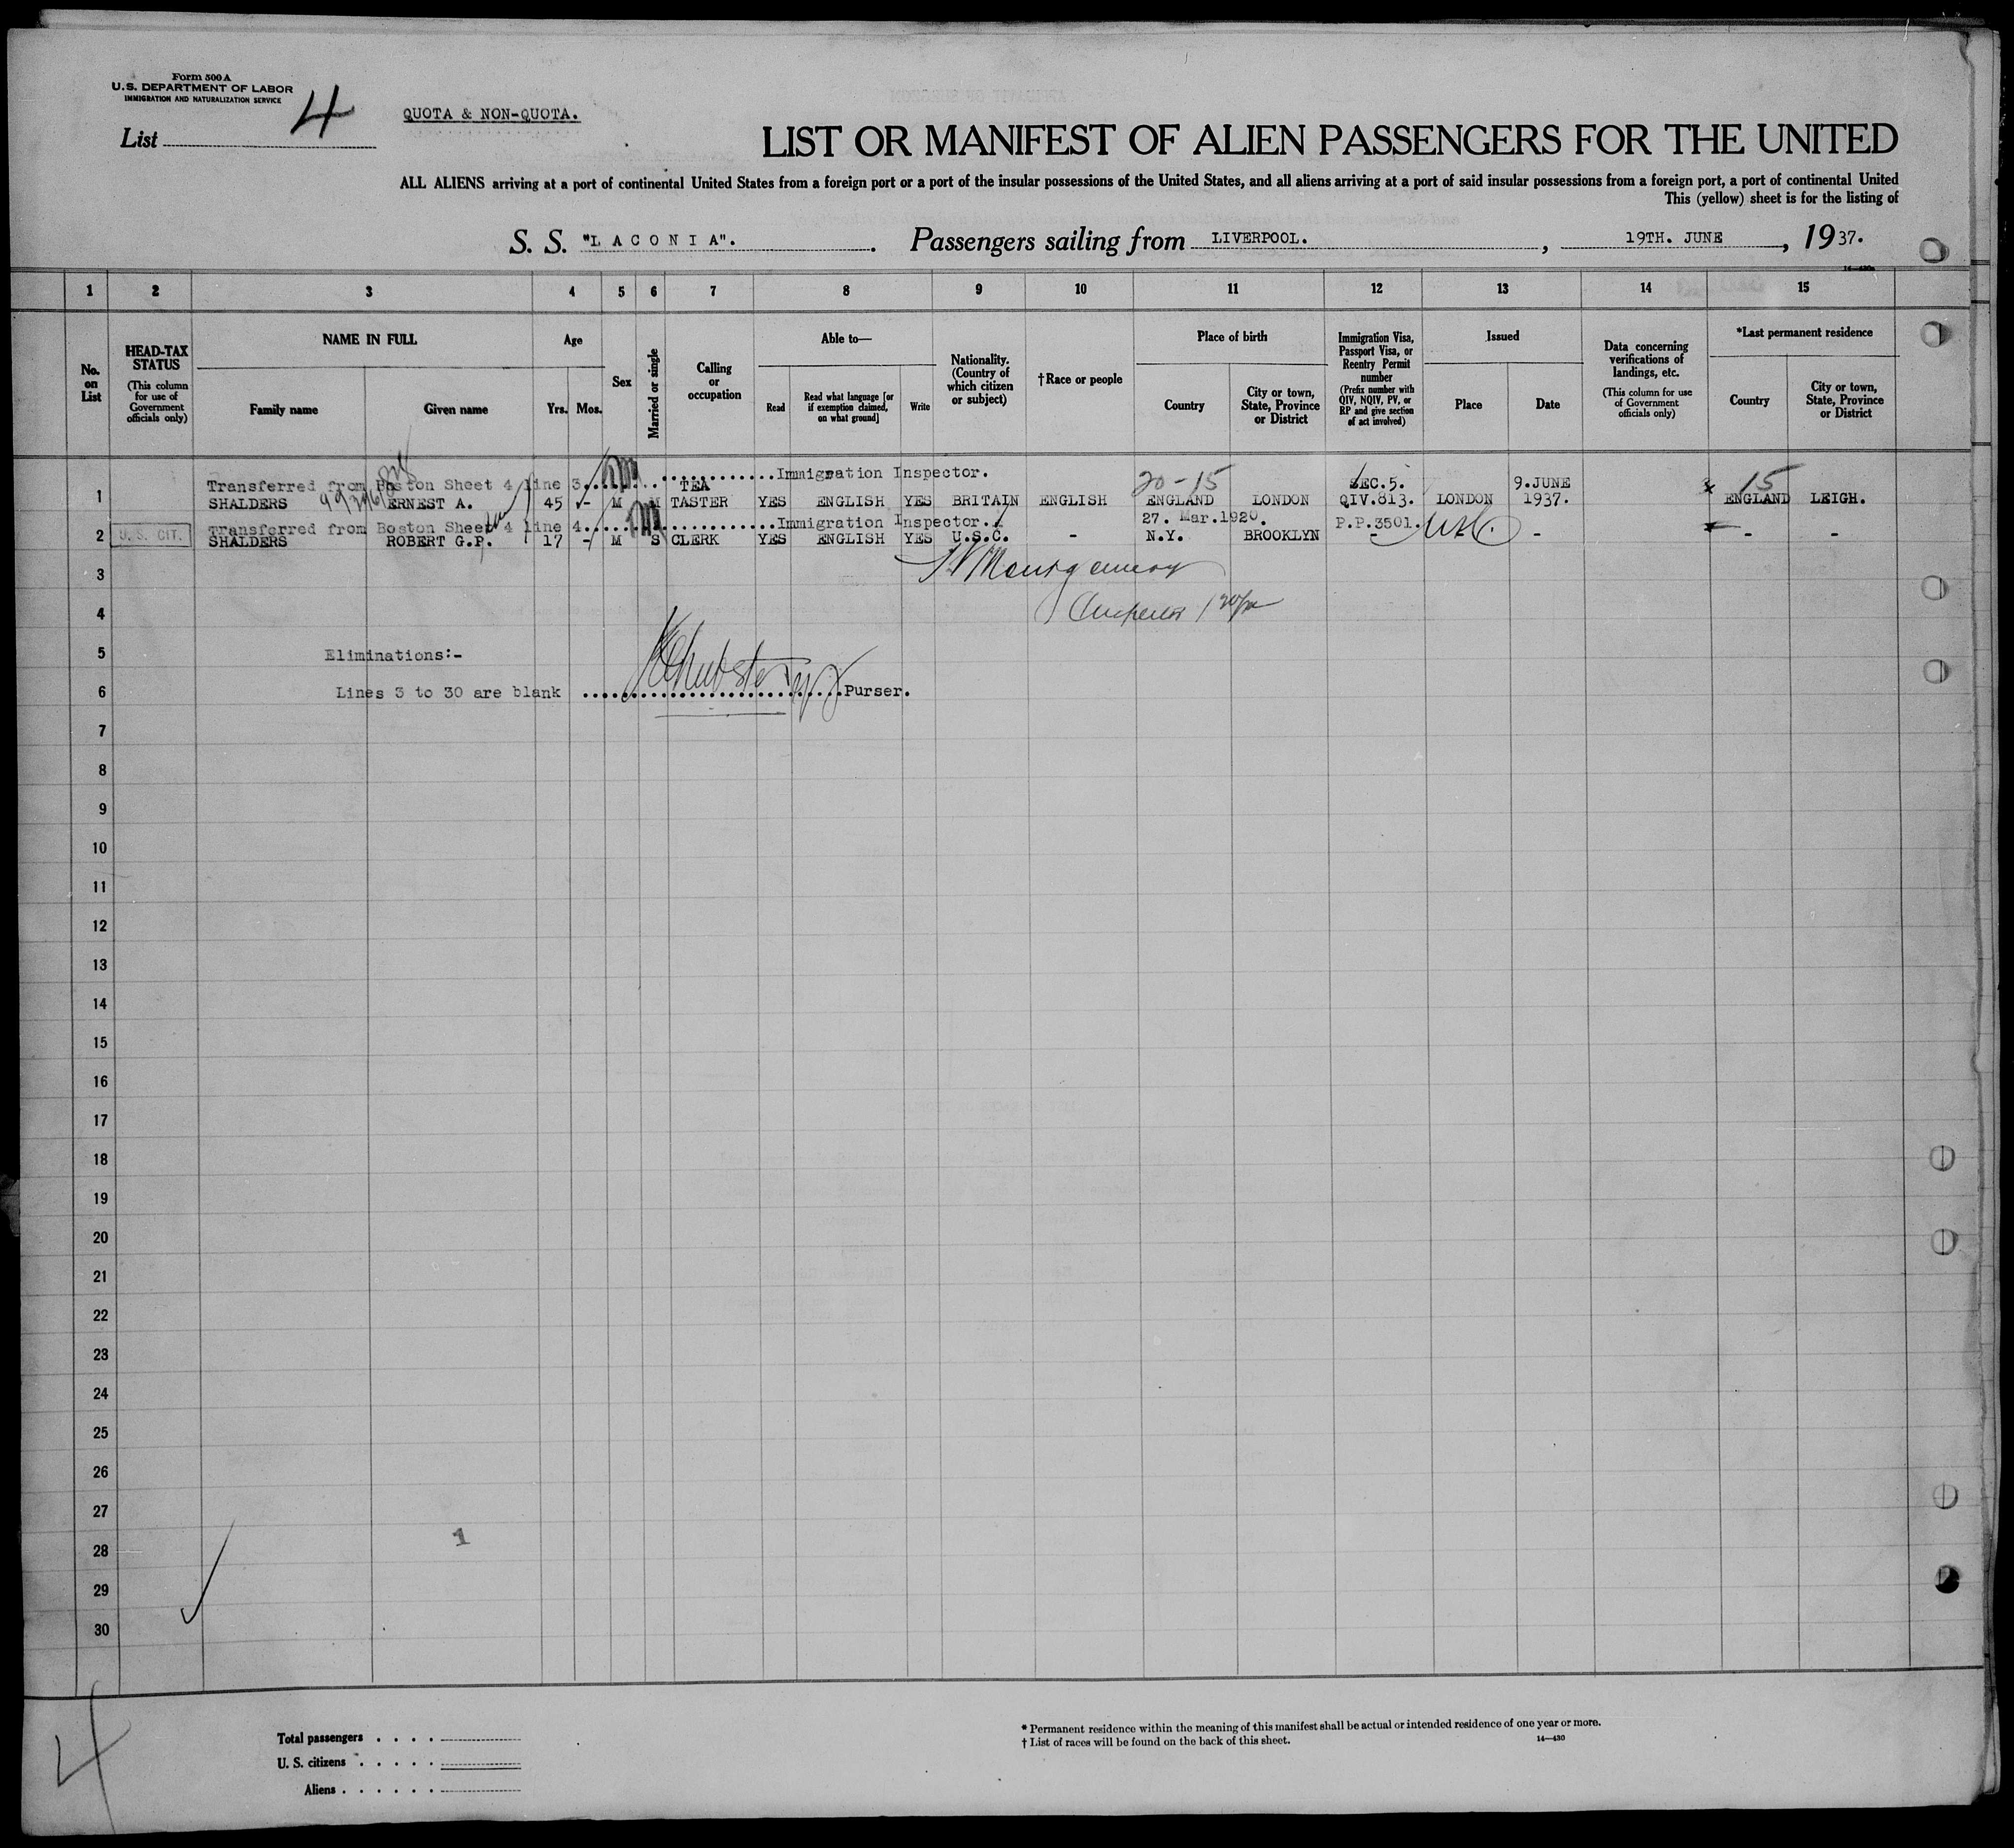 Form 500 A
U.S. DEPARTMENT OF LABOR
IMMIGRATION AND NATURALIZATION SERVICE
List 4
QUOTA & NON-QUOTA.
LIST OR MANIFEST OF ALIEN PASSENGERS FOR THE UNITED
ALL ALIENS arriving at a port of continental United States from a foreign port or a port of the insular possessions of the United States, and all aliens arriving at a port of said insular possessions from a foreign port, a port of continental United
This (yellow) sheet is for the listing of
S. S. "LACONIA". Passengers sailing from LIVERPOOL., 19TH. JUNE, 1937.
14—430a
1 2 3 4 5 6 7 8 9 10 11 12 13 14 15
No. on List
HEAD-TAX STATUS
(This column for use of Government officials only)
NAME IN FULL
Family name
Given name
Age
Yrs. Mos.
Sex
Married or single
Calling or occupation
Able to—
Read
Read what language [or if exemption claimed, on what ground]
Write
Nationality. (Country of which citizen or subject)
†Race or people
Place of birth
Country
City or town, State, Province or District
Immigration Visa, Passport Visa, or Reentry Permit number
(Prefix number with QIV, NQIV, PV, or RP and give section of act involved)
Issued
Place
Date
Data concerning verifications of landings, etc.
(This column for use of Government officials only)
*Last permanent residence
Country
City or town, State, Province or District
Transferred from Boston Sheet 4 line 3. Immigration Inspector.
TEA 20-15 SEC.5. 9.JUNE 15
1 SHALDERS ERNEST A. 45 - M M TASTER YES ENGLISH YES BRITAIN ENGLISH ENGLAND LONDON QIV.813. LONDON 1937. ENGLAND LEIGH.
Transferred from Boston Sheet 4 line 4. Immigration Inspector.
U.S. CIT. 27. Mar.1920. P.P.3501.
2 SHALDERS ROBERT G.P. 17 - M S CLERK YES ENGLISH YES U.S.C. - N.Y. BROOKLYN - - - -
3 Montgomery
4
5 Eliminations:-
6 Lines 3 to 30 are blank Purser.
7
8
9
10
11
12
13
14
15
16
17
18
19
20
21
22
23
24
25
26
27
28 1
29
30
4
Total passengers
U. S. citizens
Aliens
* Permanent residence within the meaning of this manifest shall be actual or intended residence of one year or more.
† List of races will be found on the back of this sheet.
14—430